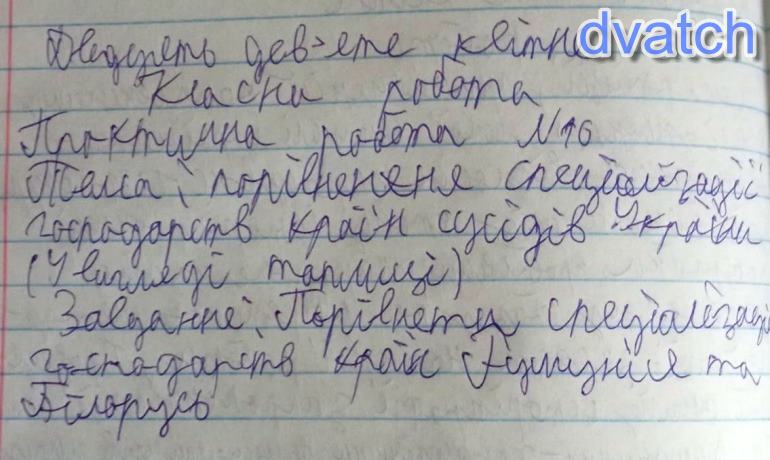 dvatch
Двадцять дев'яте квітня
Класна робота
Практична робота №16
Тема: порівненяня спеціалізації
господарств країн сусідів України
(У вигляді таблиці)
Завдання: Порівнети спеціалізації
господарств країн Румунія та
Білорусь